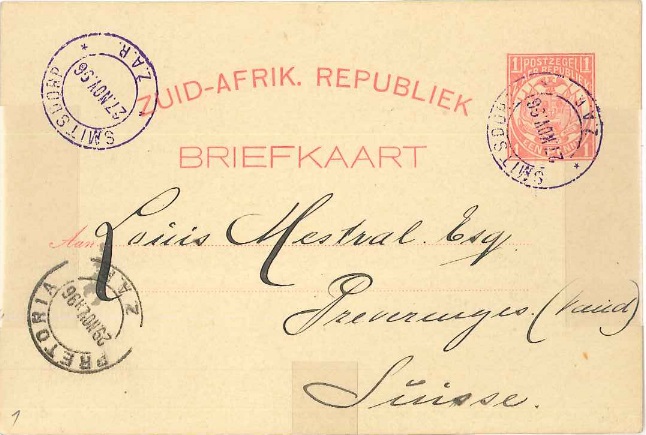 SMITSDORP Z.A.R.
27.NOV.96
ZUID-AFRIK. REPUBLIEK
BRIEFKAART
1 POSTZEGEL 1
Z. AFR. REPUBLIEK
EEN 1
SMITSDORP Z.A.R.
27.NOV.96
Aan Louis Mestral. Esq.
Preverenges. (Vaud)
Suisse.
PRETORIA Z.A.R.
29.NOV.96
1